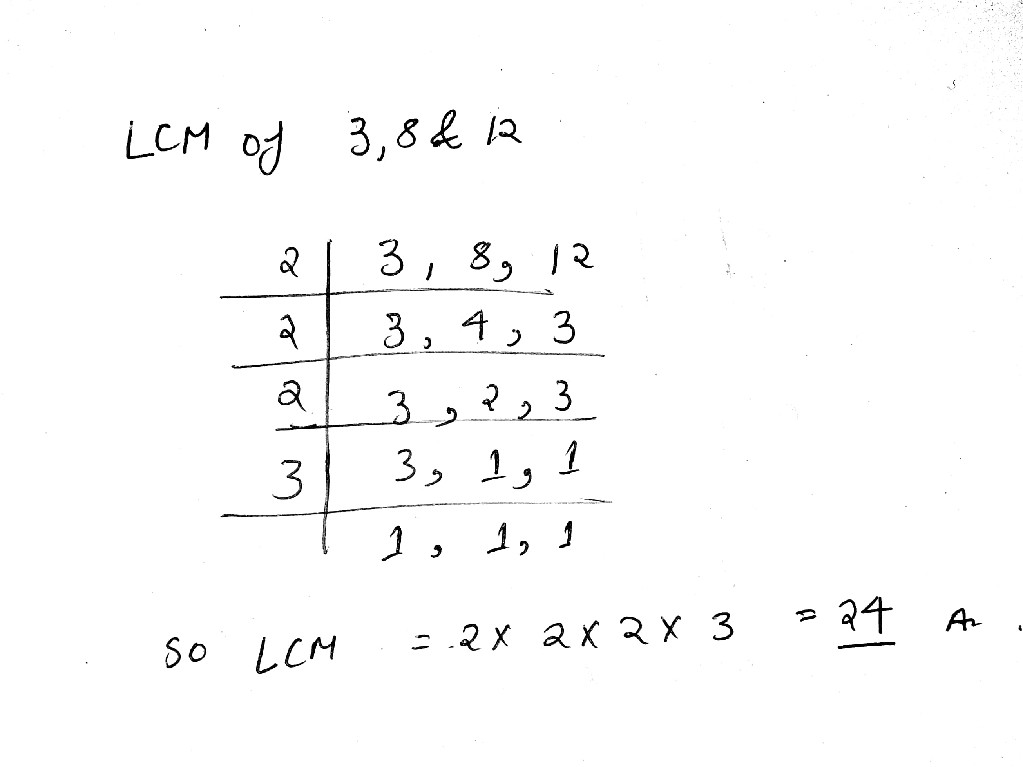 LCM of 3,8 & 12
2 | 3, 8, 12
2 | 3, 4, 3
2 | 3, 2, 3
3 | 3, 1, 1
1, 1, 1
So LCM = 2 x 2 x 2 x 3 = 24 A